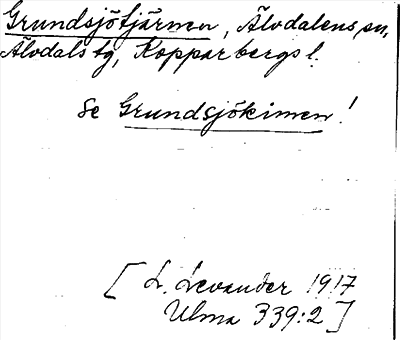 Grundsjötjärnen, Älvdalens sn,
Älvdals tg, Kopparbergs l.
Se Grundsjökimen!
[L. Levander 1917
Ulma 339:2]